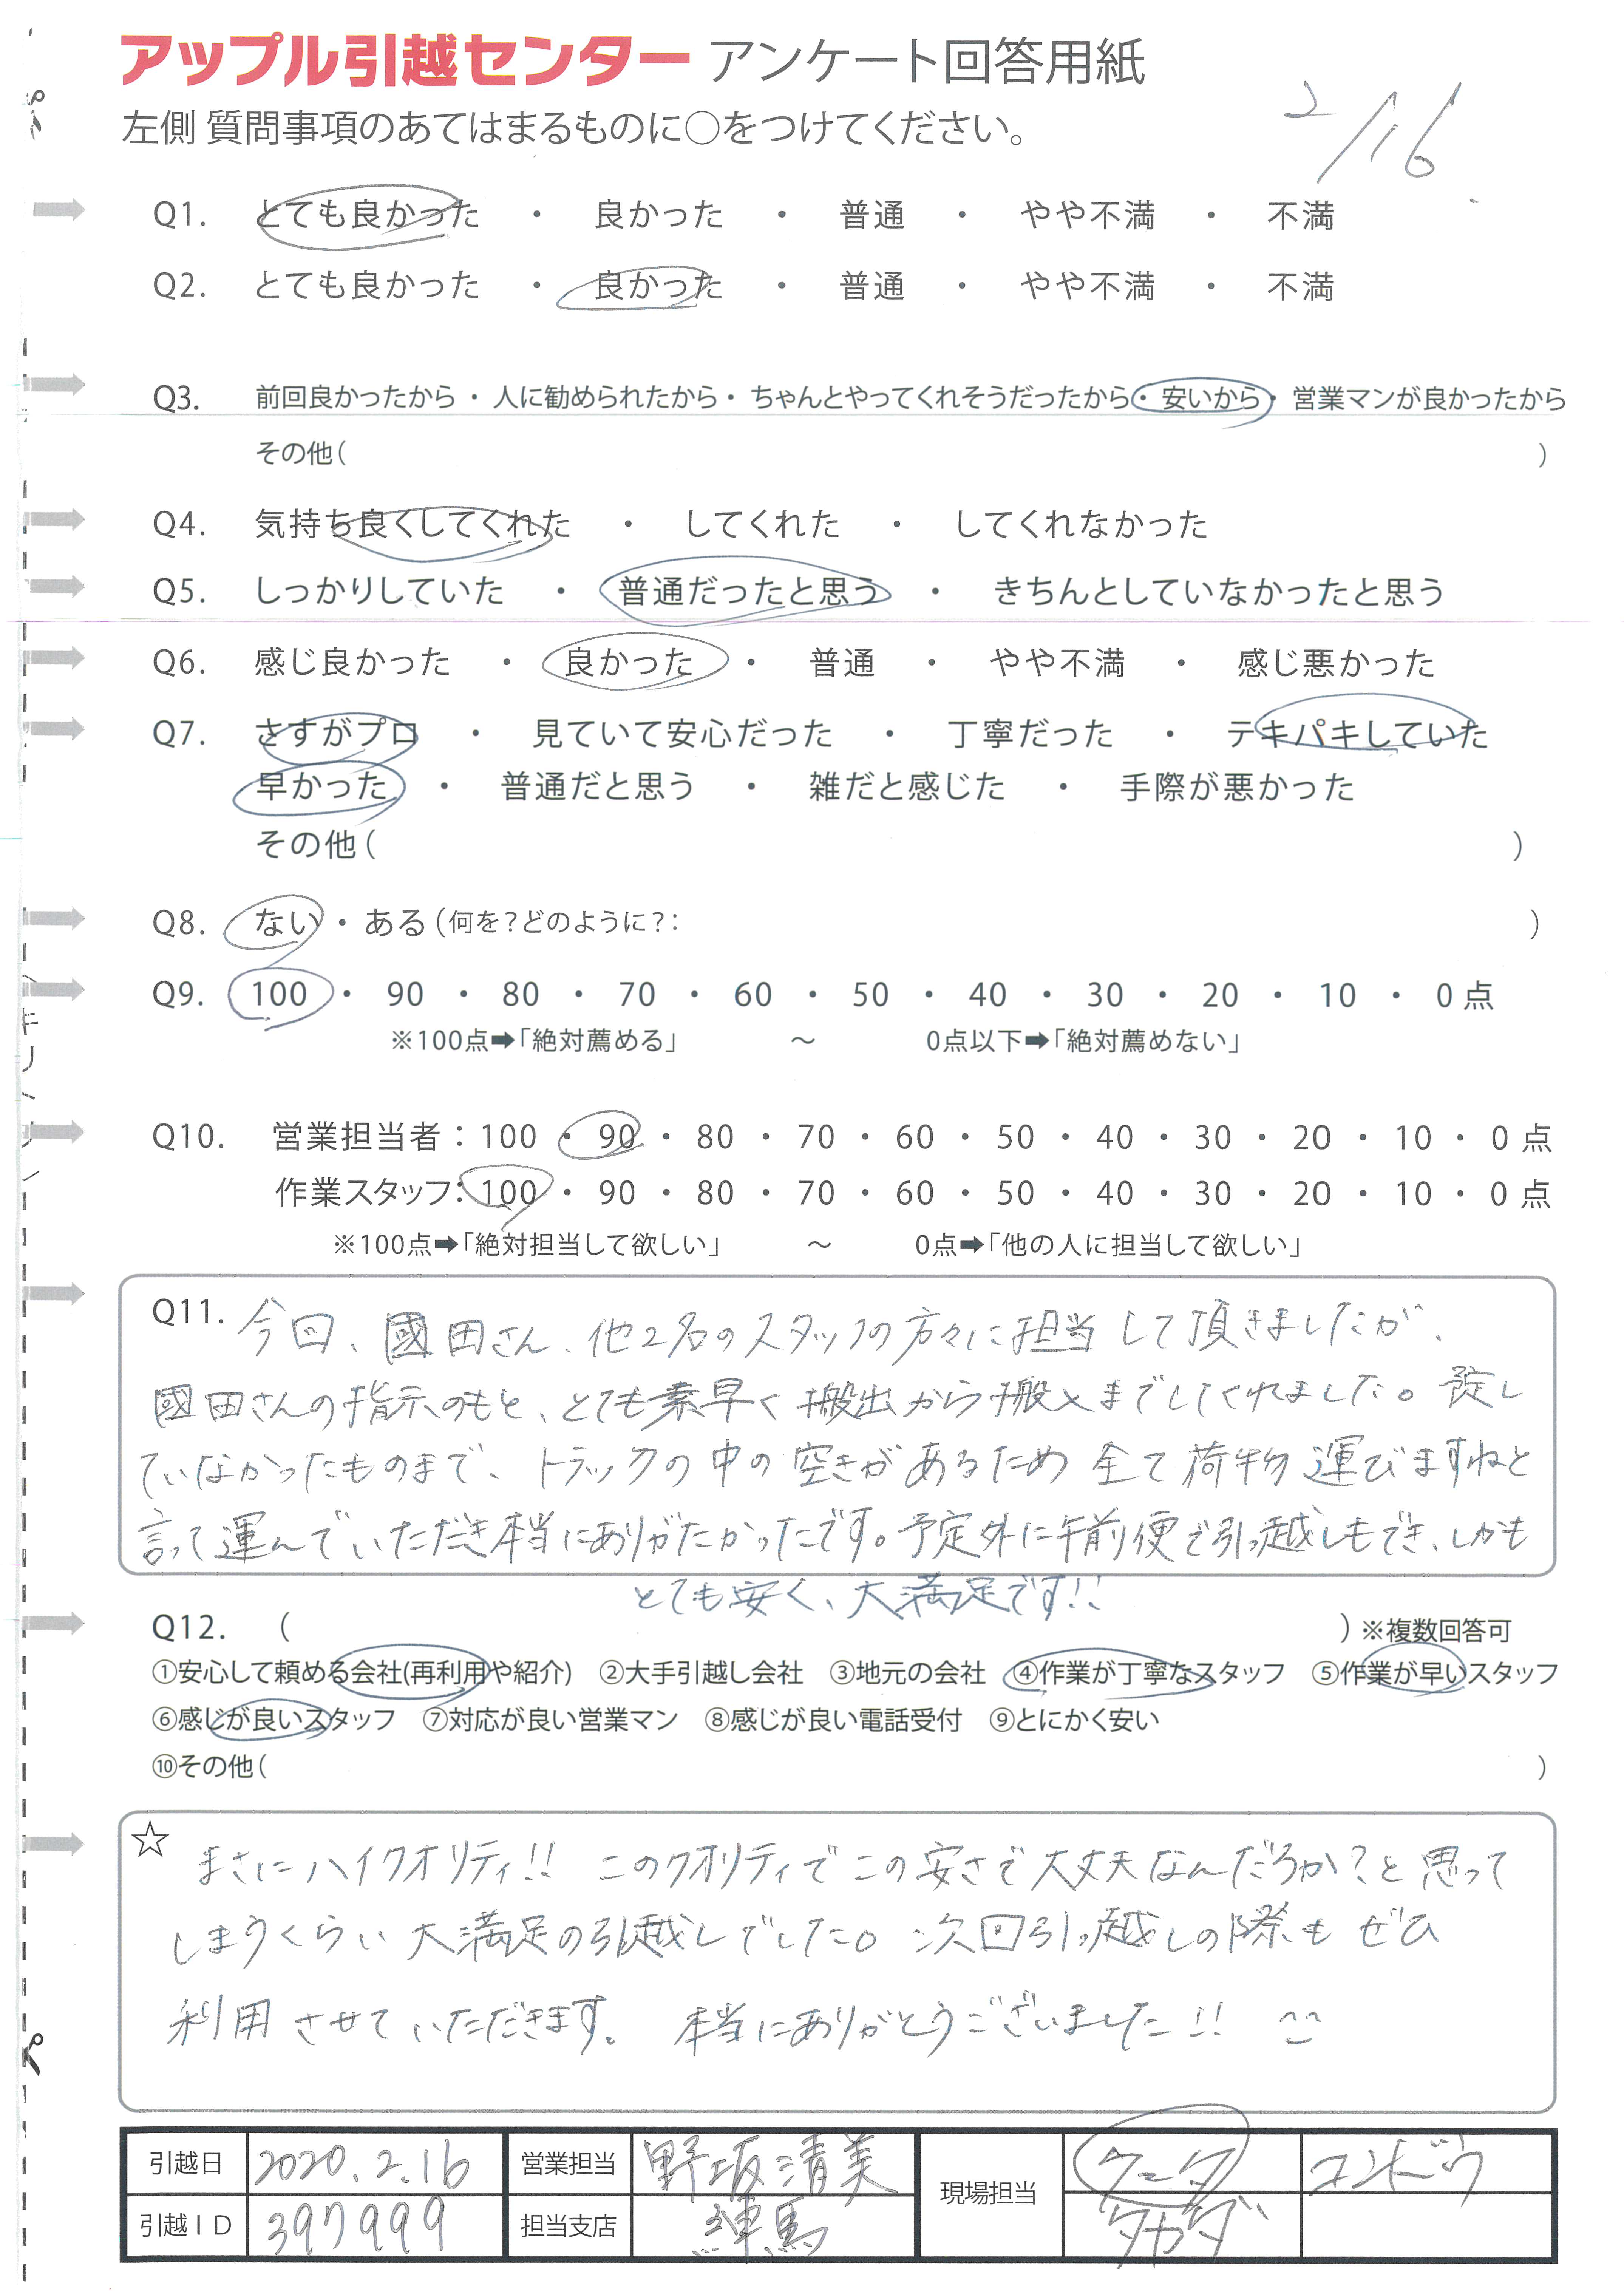 アップル引越センター アンケート回答用紙
2/16
左側 質問事項のあてはまるものに○をつけてください。
Q1. とても良かった ・ 良かった ・ 普通 ・ やや不満 ・ 不満
Q2. とても良かった ・ 良かった ・ 普通 ・ やや不満 ・ 不満
Q3. 前回良かったから ・ 人に勧められたから ・ ちゃんとやってくれそうだったから ・ 安いから ・ 営業マンが良かったから
その他( )
Q4. 気持ち良くしてくれた ・ してくれた ・ してくれなかった
Q5. しっかりしていた ・ 普通だったと思う ・ きちんとしていなかったと思う
Q6. 感じ良かった ・ 良かった ・ 普通 ・ やや不満 ・ 感じ悪かった
Q7. さすがプロ ・ 見ていて安心だった ・ 丁寧だった ・ テキパキしていた
早かった ・ 普通だと思う ・ 雑だと感じた ・ 手際が悪かった
その他( )
Q8. ない ・ ある(何を?どのように?: )
Q9. 100 ・ 90 ・ 80 ・ 70 ・ 60 ・ 50 ・ 40 ・ 30 ・ 20 ・ 10 ・ 0 点
※100点➡「絶対薦める」 ～ 0点以下➡「絶対薦めない」
キリトリ
Q10. 営業担当者:100 ・ 90 ・ 80 ・ 70 ・ 60 ・ 50 ・ 40 ・ 30 ・ 20 ・ 10 ・ 0 点
作業スタッフ:100 ・ 90 ・ 80 ・ 70 ・ 60 ・ 50 ・ 40 ・ 30 ・ 20 ・ 10 ・ 0 点
※100点➡「絶対担当して欲しい」 ～ 0点➡「他の人に担当して欲しい」
Q11. 今回、國田さん、他2名のスタッフの方々に担当して頂きましたが、
國田さんの指示のもと、とても素早く搬出から搬入までしてくれました。予定し
ていなかったものまで、トラックの中の空きがあるため全て荷物運びますねと
言って運んでいただき本当にありがたかったです。予定外に午前便で引っ越しもでき、しかも
とても安く、大満足です!!
Q12. ( ) ※複数回答可
①安心して頼める会社(再利用や紹介) ②大手引越し会社 ③地元の会社 ④作業が丁寧なスタッフ ⑤作業が早いスタッフ
⑥感じが良いスタッフ ⑦対応が良い営業マン ⑧感じが良い電話受付 ⑨とにかく安い
⑩その他( )
☆ まさにハイクオリティ!! このクオリティでこの安さで大丈夫なんだろか?と思って
しまうくらい大満足の引越しでした。次回引っ越しの際もぜひ
利用させていただきます。 本当にありがとうございました!!
引越日 2020.2.16 営業担当 野坂清美 現場担当 クニタ コンドウ
引越ID 397999 担当支店 練馬 タカダ